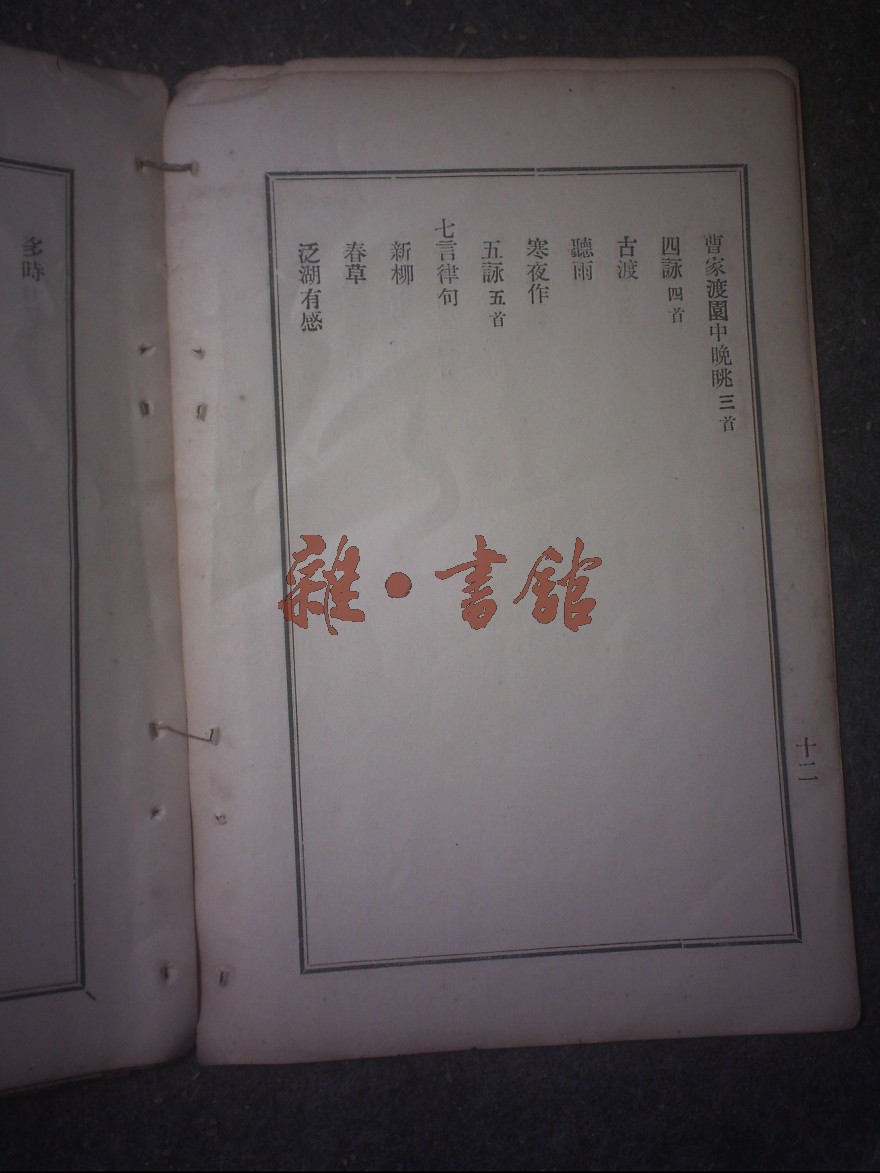 曹家渡園中晚眺 三首
四詠 四首
古渡
聽雨
寒夜作
五詠 五首
七言律句
新柳
春草
泛湖有感
十二
多時
雜·書館